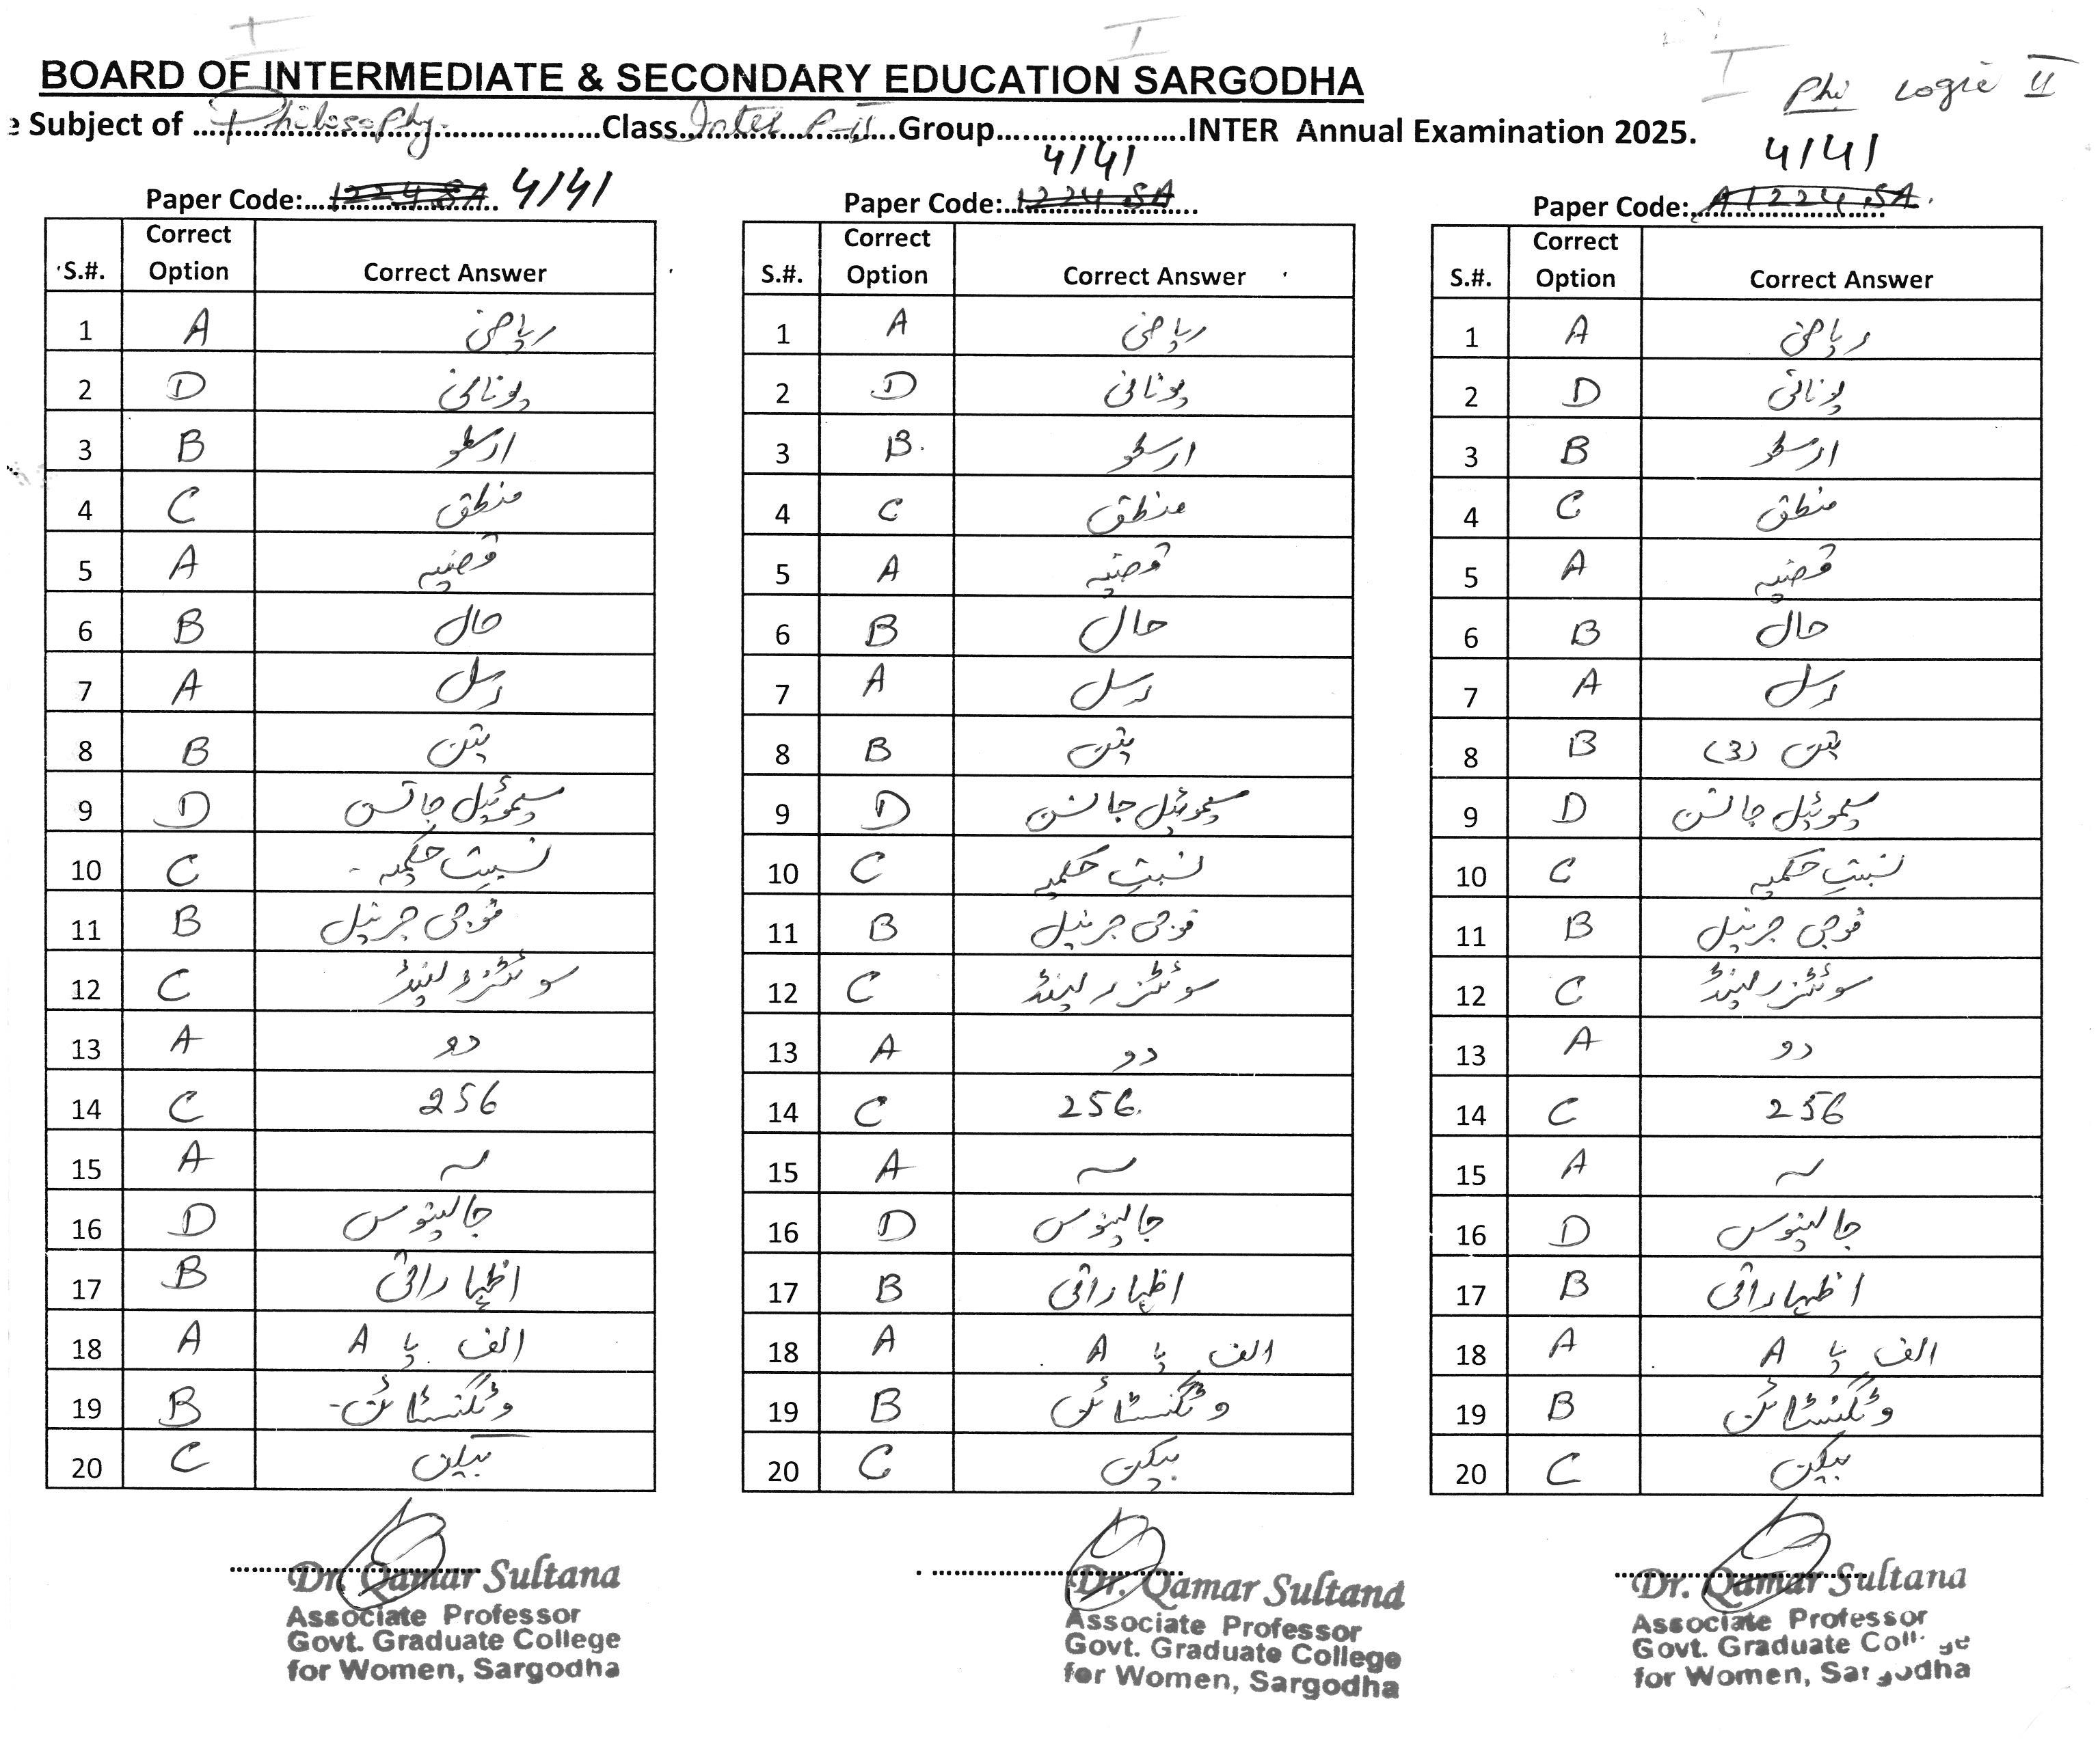 BOARD OF INTERMEDIATE & SECONDARY EDUCATION SARGODHA
Phi Logic II
e Subject of Philosophy. Class Inter P-II Group INTER Annual Examination 2025.
Paper Code: 1224 SA 4141
S.#. Correct Option Correct Answer
1 A ریاضی
2 D یونانی
3 B ارسطو
4 C منطق
5 A قضیہ
6 B حال
7 A رسل
8 B تین
9 D سیموئیل جانسن
10 C نسبت حکمیہ -
11 B فوجی جرنیل
12 C سوئٹزرلینڈ
13 A دو
14 C 256
15 A ~
16 D جالینوس
17 B اظہاراتی
18 A الف یا A
19 B وٹگنسٹائن -
20 C بیکن
Dr. Qamar Sultana
Associate Professor
Govt. Graduate College
for Women, Sargodha
4141
Paper Code: 1224 SA
S.#. Correct Option Correct Answer
1 A ریاضی
2 D یونانی
3 B. ارسطو
4 C منطق
5 A قضیہ
6 B حال
7 A رسل
8 B تین
9 D سیموئیل جانسن
10 C نسبتِ حکمیہ
11 B فوجی جرنیل
12 C سوئٹزرلینڈ
13 A دو
14 C 256.
15 A ~
16 D جالینوس
17 B اظہاراتی
18 A الف یا A
19 B وٹگنسٹائن
20 C بیکن
Dr. Qamar Sultana
Associate Professor
Govt. Graduate College
for Women, Sargodha
4141
Paper Code: A1224 SA
S.#. Correct Option Correct Answer
1 A ریاضی
2 D یونانی
3 B ارسطو
4 C منطق
5 A قضیہ
6 B حال
7 A رسل
8 B تین (3)
9 D سیموئیل جانسن
10 C نسبتِ حکمیہ
11 B فوجی جرنیل
12 C سوئٹزرلینڈ
13 A دو
14 C 256
15 A ~
16 D جالینوس
17 B اظہاراتی
18 A الف یا A
19 B وٹگنسٹائن
20 C بیکن
Dr. Qamar Sultana
Associate Professor
Govt. Graduate College
for Women, Sargodha